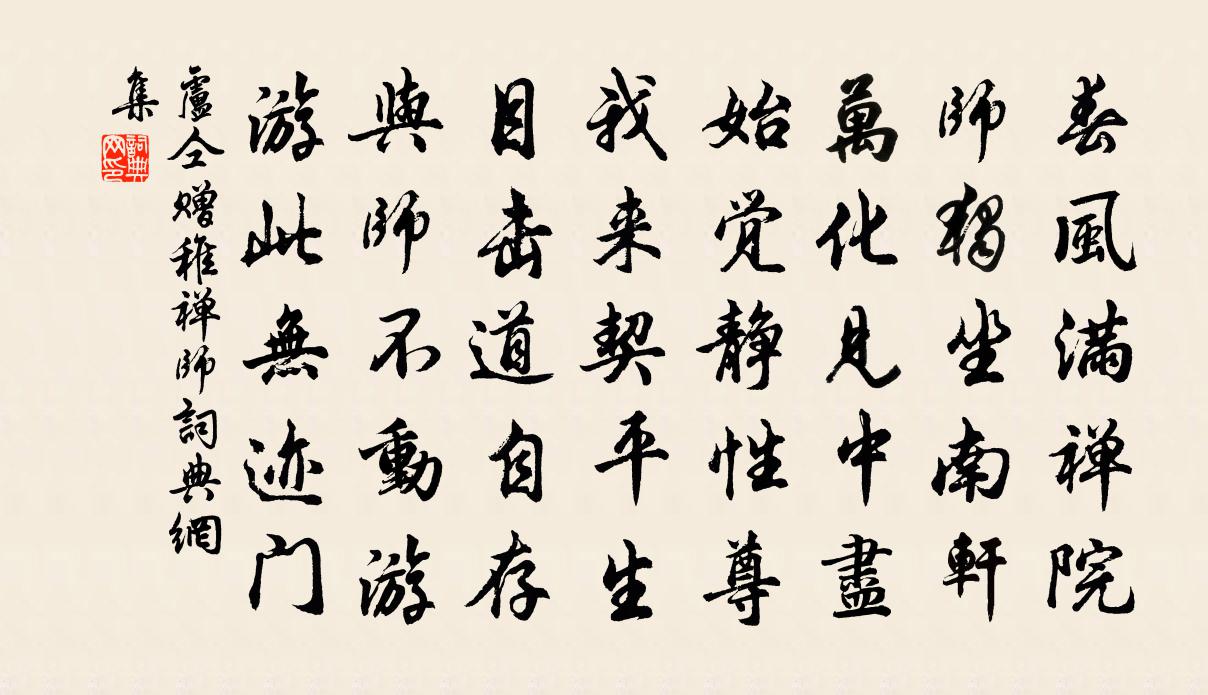 春風滿禅院
師獨坐南軒
萬化見中盡
始觉静性尊
我来契平生
目击道自存
與師不動游
游此無迹门
盧仝赠稚禅師詞典網
集
詞典网印